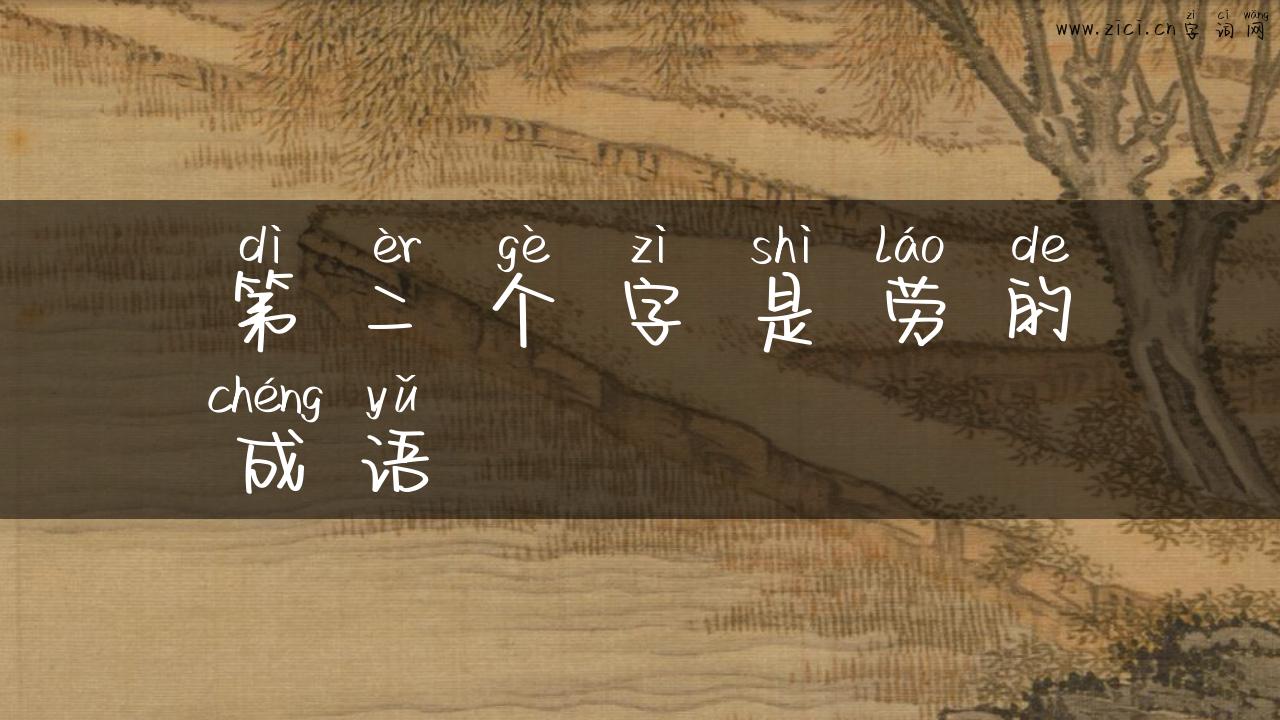 zì cí wǎng
www.zici.cn字词网
dì èr gè zì shì láo de
第二个字是劳的
chéng yǔ
成语